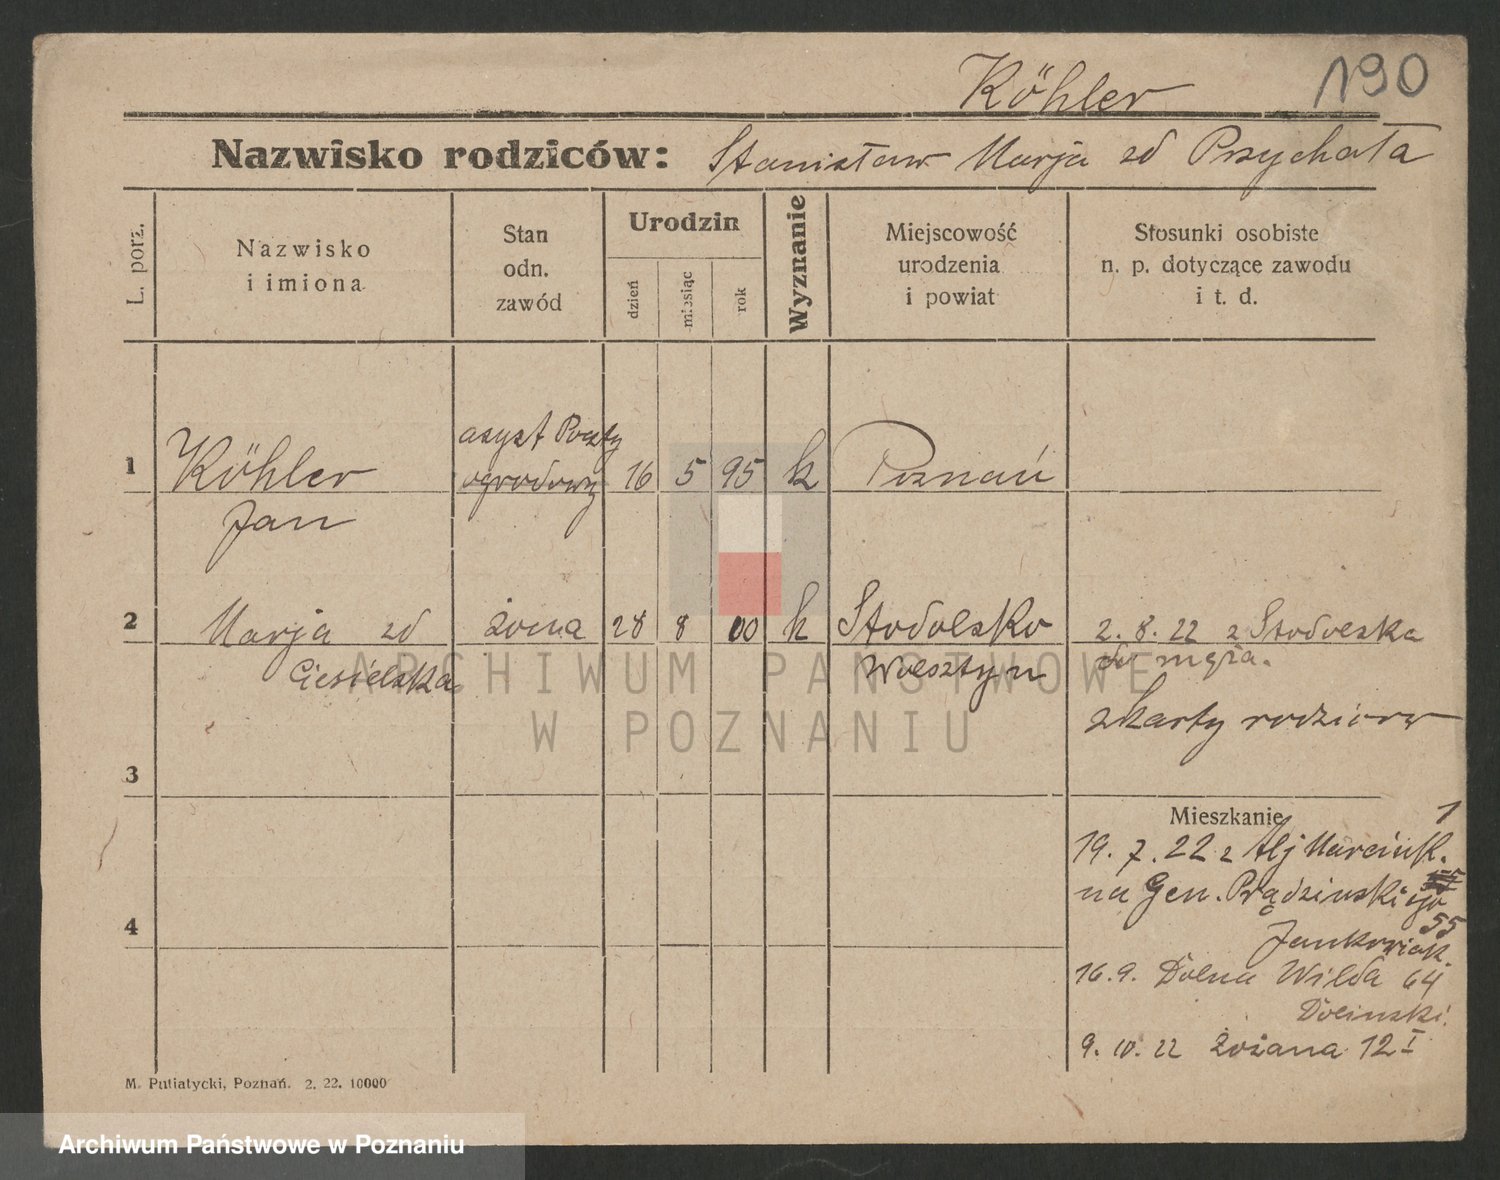 Köhler 190
Nazwisko rodziców: Stanisław Marja zd Przychała
L. porz.
Nazwisko
i imiona
Stan
odn.
zawód
Urodzin
dzień
miesiąc
rok
Wyznanie
Miejscowość
urodzenia
i powiat
Stosunki osobiste
n. p. dotyczące zawodu
i t. d.
asyst Poczty
1 Köhler ogrodowy 16 5 95 k Poznań
Jan
2 Marja zd żona 28 8 00 k Stodolsko 2. 8. 22 z Stodolska
Ciesielska Wolsztyn do męża.
z karty rodziców
3
Mieszkanie
1
19. 7. 22 z Alj Marcink.
na Gen. Prądzinskiego
55
4
Jankowiak.
16. 9. Dolna Wilda 64
Dolinski.
9. 10. 22 Różana 12 I
M. Putiatycki, Poznań. 2. 22. 10000
ARCHIWUM PAŃSTWOWE
W POZNANIU
Archiwum Państwowe w Poznaniu